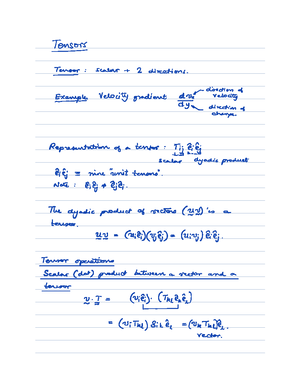 Tensors
Tensor : scalar + 2 directions.
Example Velocity gradient dvx/dy direction of velocity
direction of change.
Representation of a tensor : Tij êi êj
scalar dyadic product
êi êj ≡ nine "unit tensors".
Note : êi êj ≠ êj êi.
The dyadic product of vectors (u v) is a
tensor.
u v = (ui êi)(vj êj) = (ui vj) êi êj.
Tensor operations
Scalar (dot) product between a vector and a
tensor
v · T = (vi êi) · (Tkl êk êl)
= (vi Tkl) δik êl = (vk Tkl) êl.
vector.